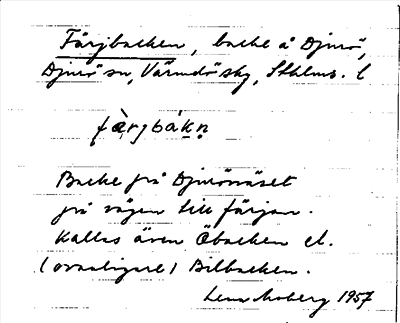 Färjbacken, backe å Djurö,
Djurö sn, Värmdö skg, Sthlms. l
fæ̀rjbákn̥
Backe på Djurönäset
på vägen till färjan.
Kallas även Öbacken el.
(ovanligare) Bilbacken.
Lena Moberg 1957